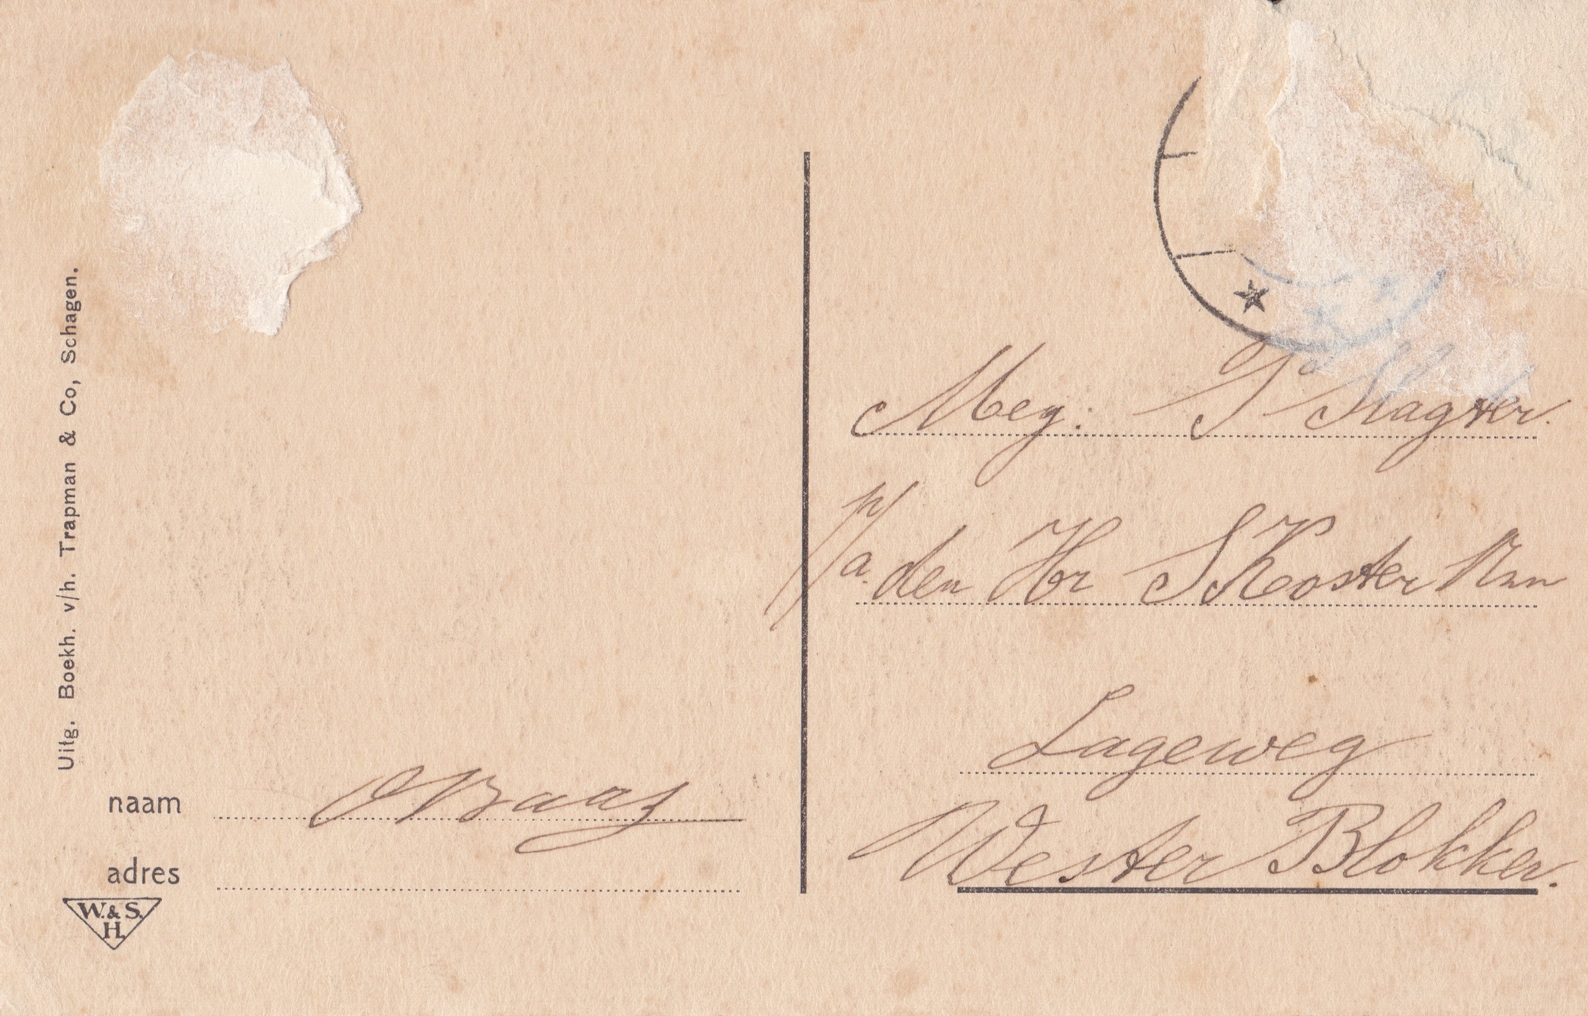 Uitg. Boekh. v/h. Trapman & Co, Schagen.
naam
adres
W. & S.
H.
Mej: S Slagter.
p/a. den Hr S Koster Nzn
Lageweg
Wester Blokker.